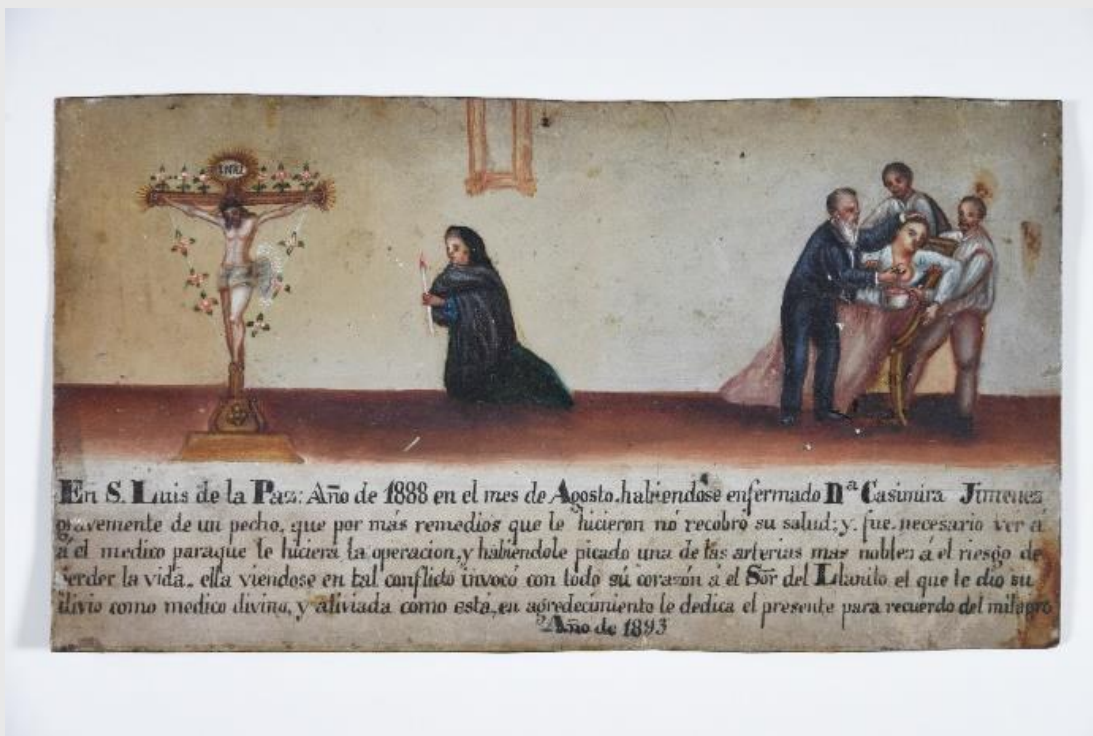 INRI
En S. Luis de la Paz: Año de 1888 en el mes de Agosto. habiendose enfermado Dª Casimira Jimenez
gravemente de un pecho, que por más remedios que le hicieron nó recobró su salud; y. fue. necesario ver á
á el medico paraque le hiciera la operacion, y habiendole picado una de las arterias mas nobles á el riesgo de
perder la vida. ella viendose en tal conflicto invocó con todo sú corazón á el Sór del Llanito el que le dió su
alivio como medico divino, y aliviada como está, en agredecimiento le dedica el presente para recuerdo del milagro
Año de 1893